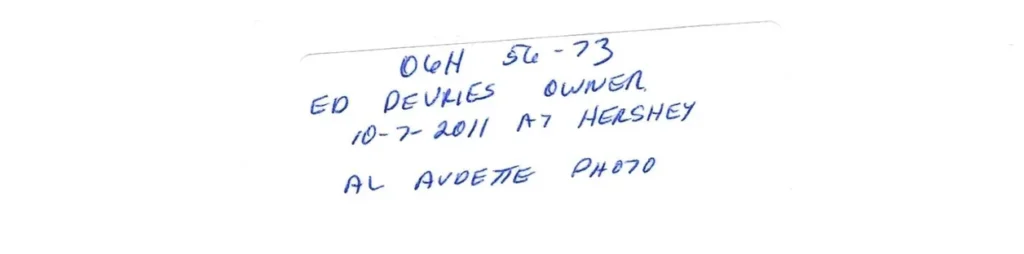 06H 56-73
ED DEVRIES OWNER
10-7-2011 AT HERSHEY
AL AUDETTE PHOTO